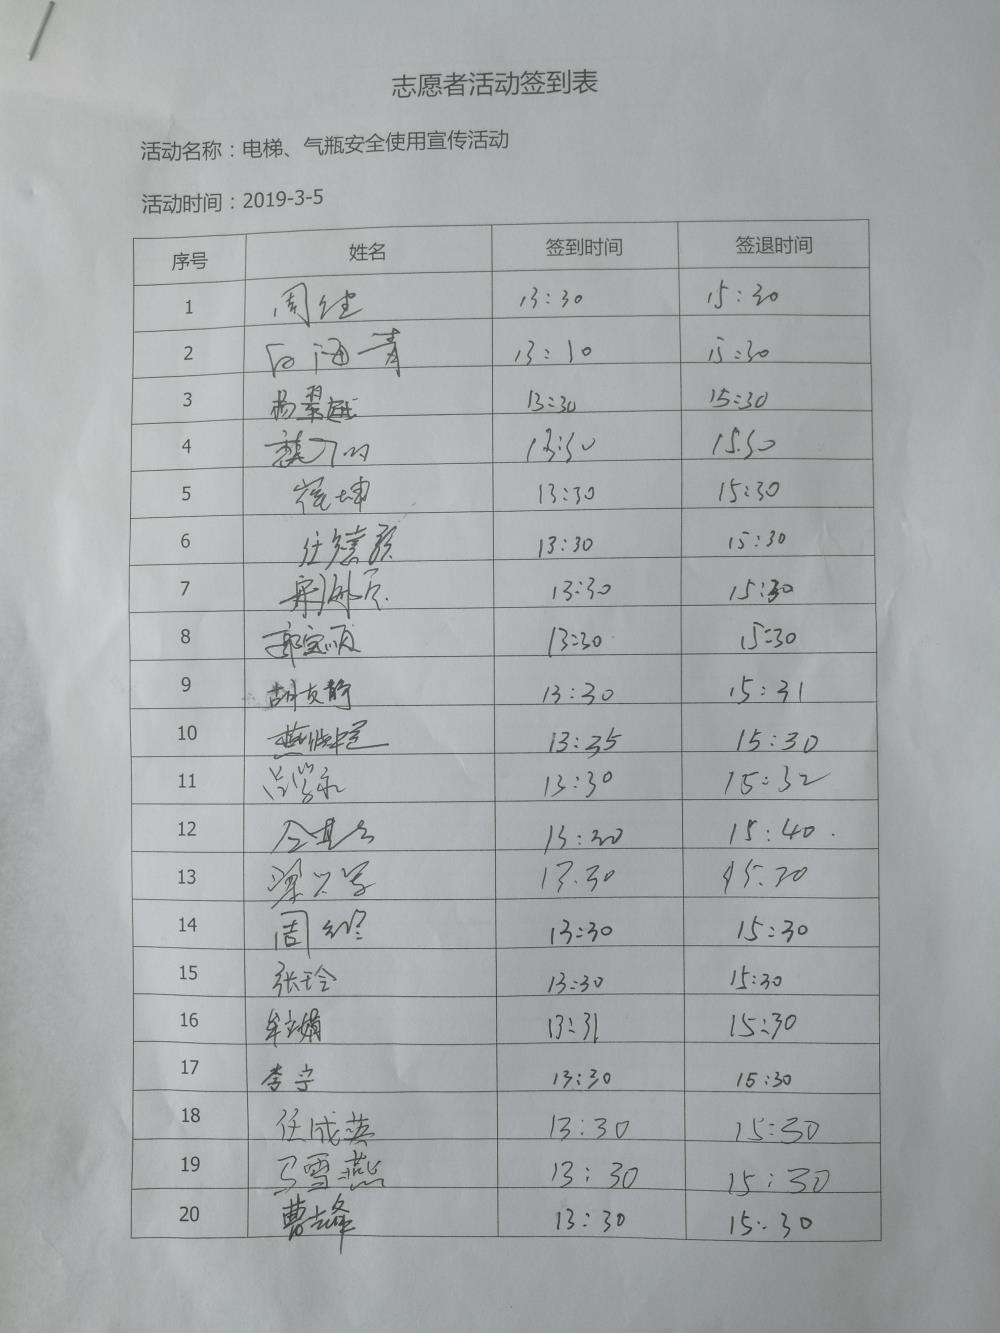 志愿者活动签到表
活动名称：电梯、气瓶安全使用宣传活动
活动时间：2019-3-5
序号 姓名 签到时间 签退时间
1 周 13:30 15:30
2 石海青 13:30 15:30
3 杨翠 13:30 15:30
4 13:30 15:30
5 崔坤 13:30 15:30
6 任德 13:30 15:30
7 13:30 15:30
8 郭宝顺 13:30 15:30
9 胡友静 13:30 15:31
10 燕 13:35 15:30
11 吕学永 13:30 15:32
12 13:30 15:40
13 梁 13:30 15:30
14 周 13:30 15:30
15 张玲 13:30 15:30
16 牟文娟 13:31 15:30
17 李宁 13:30 15:30
18 任成英 13:30 15:30
19 马雪燕 13:30 15:30
20 曹志峰 13:30 15:30